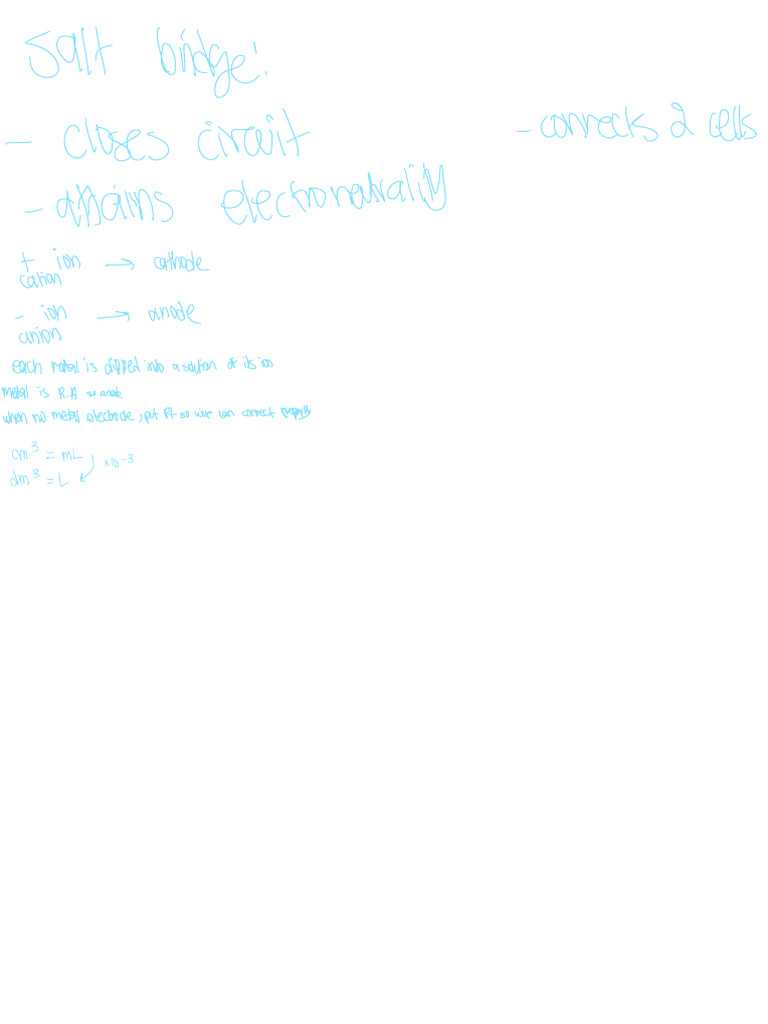 Salt bridge:
- closes circuit
- connects 2 cells
- attains electronatrality
+ ion → cathode
cation
- ion → anode
anion
each metal is dipped into a solution of its ion
metal is R.A so anode
when no metal electrode, put Pt so wire can connect properly
cm³ = mL
x10-3
dm³ = L